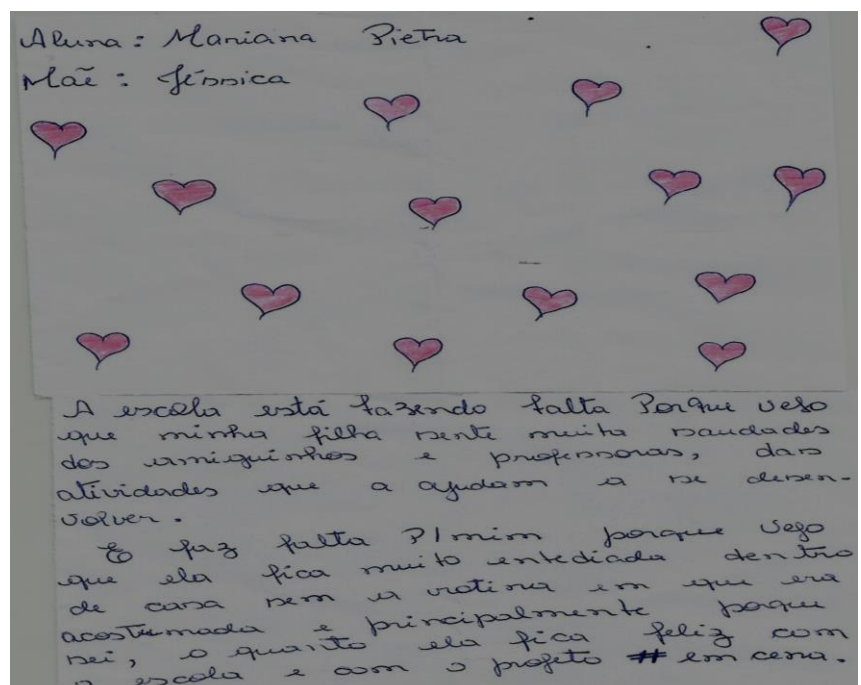 Aluna: Mariana Pietra
Mãe: Jéssica
A escola está fazendo falta Porque vejo
que minha filha sente muita saudades
dos amiguinhos e professoras, das
atividades que a ajudam a se desen-
volver.
E faz falta P/mim porque vejo
que ela fica muito entediada dentro
de casa sem a rotina em que era
acostumada e principalmente porque
sei, o quanto ela fica feliz com
a escola e com o projeto # em cena.